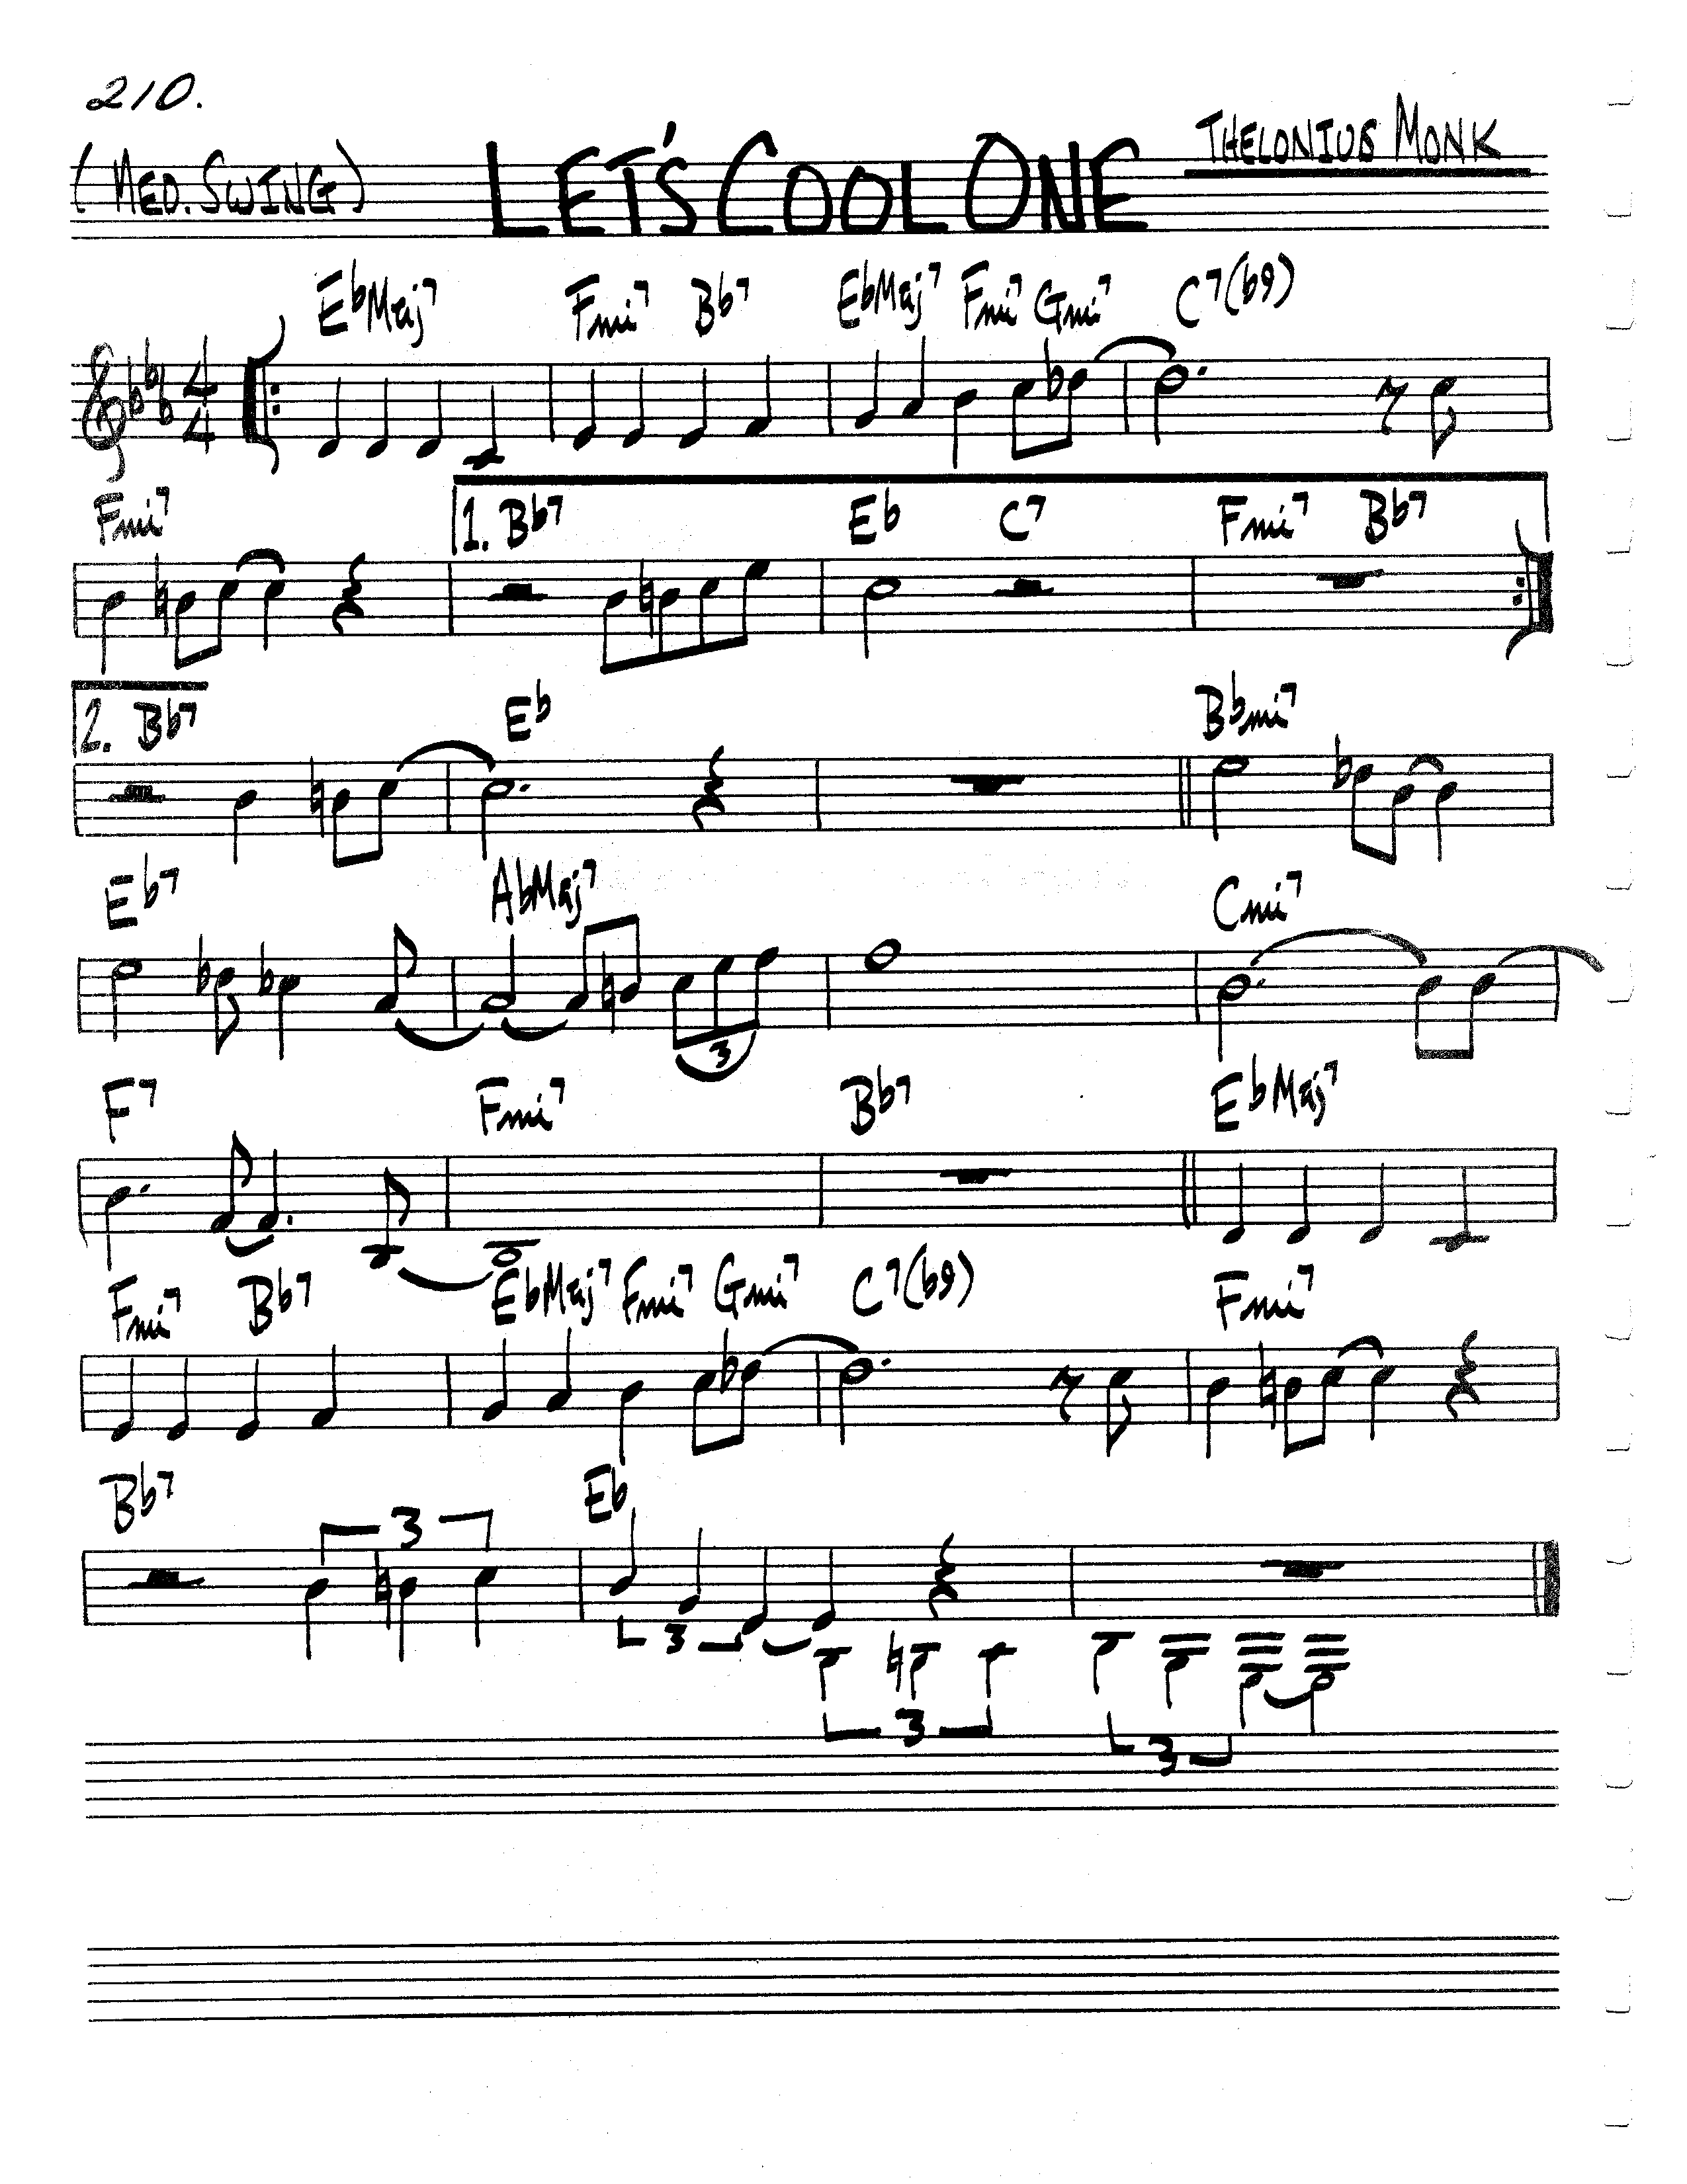 210.
(MED. SWING) LET'S COOL ONE THELONIUS MONK
EbMaj7 Fmi7 Bb7 EbMaj7 Fmi7 Gmi7 C7(b9)
4
4
Fmi7 1. Bb7 Eb C7 Fmi7 Bb7
2. Bb7 Eb Bbmi7
Eb7 AbMaj7 Cmi7
3
F7 Fmi7 Bb7 EbMaj7
Fmi7 Bb7 EbMaj7 Fmi7 Gmi7 C7(b9) Fmi7
Bb7 3 Eb
3
3 3